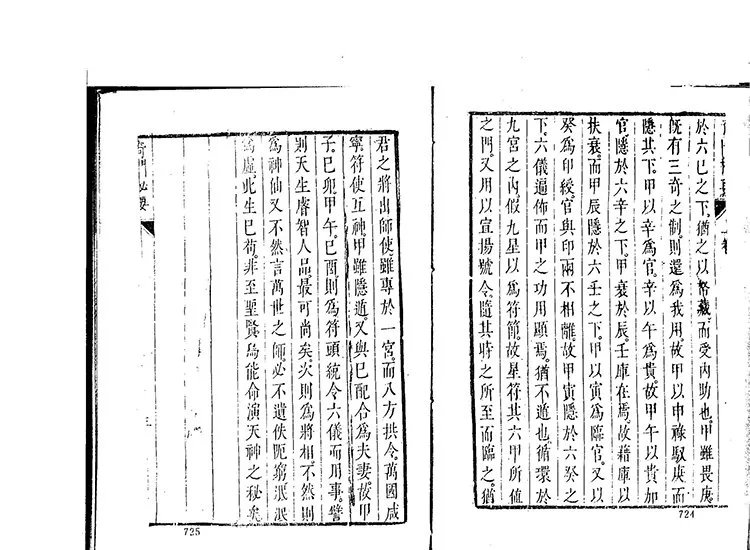 於六巳之下猶之以帑藏而受內助也甲雖畏庚
旣有三奇之制則還為我用故甲以申祿馭庚而
隱其下甲以辛為官辛以午為貴故甲午以貴如
官隱於六辛之下甲衰於辰壬庫在焉故藉庫以
扶衰而甲辰隱於六壬之下甲以寅為臨官又以
癸為印綬官與印兩不相離故甲寅隱於六癸之
下六儀遍佈而甲之功用顯焉猶不遁也循環於
九宮之內假九星以為符節故星符其六甲所值
之門又用以宣揚號令隨其時之所至而臨之猶
724
君之將出師使雖專於一宮而八方拱令萬國咸
寧符使互神甲雖隱遁又與巳配合為夫妻故甲
子巳卯甲午巳酉則為符頭統令六儀而用事譬
則天生睿智人品最可尚矣次則為將相不然則
為神仙又不然言萬世之師必不遺佚阨窮泯泯
為虛此生巳苟非至聖賢烏能命演天神之秘矣
奇門 必要
725